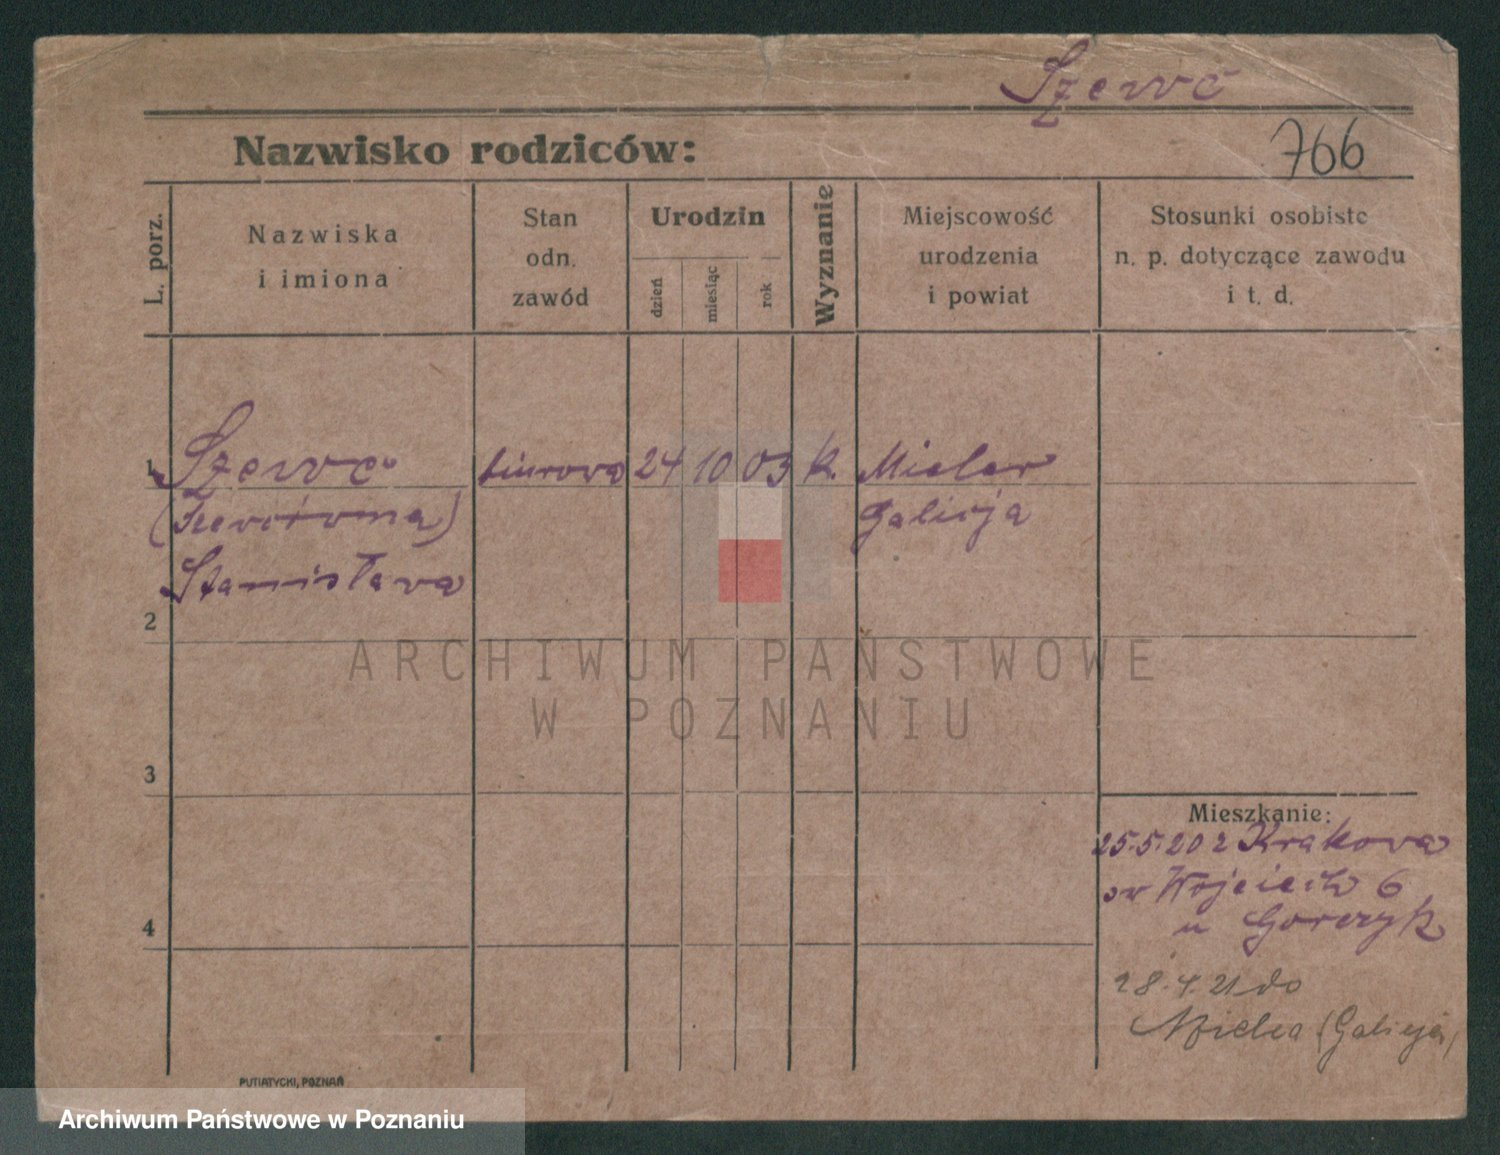 Szewc
Nazwisko rodziców:
766
L. porz.
Nazwiska
i imiona
Stan
odn.
zawód
Urodzin
dzień
miesiąc
rok
Wyznanie
Miejscowość
urodzenia
i powiat
Stosunki osobiste
n. p. dotyczące zawodu
i t. d.
1
Szewc
biurowa
24
10
03
k.
Mielec
Galicja
Stanisława
2
ARCHIWUM PAŃSTWOWE
W POZNANIU
3
Mieszkanie:
25.5.20 z Krakowa
św Wojciech 6
u Gorczyk
4
28.4.21 do
Mielca (Galicja)
PUTIATYCKI, POZNAŃ
Archiwum Państwowe w Poznaniu